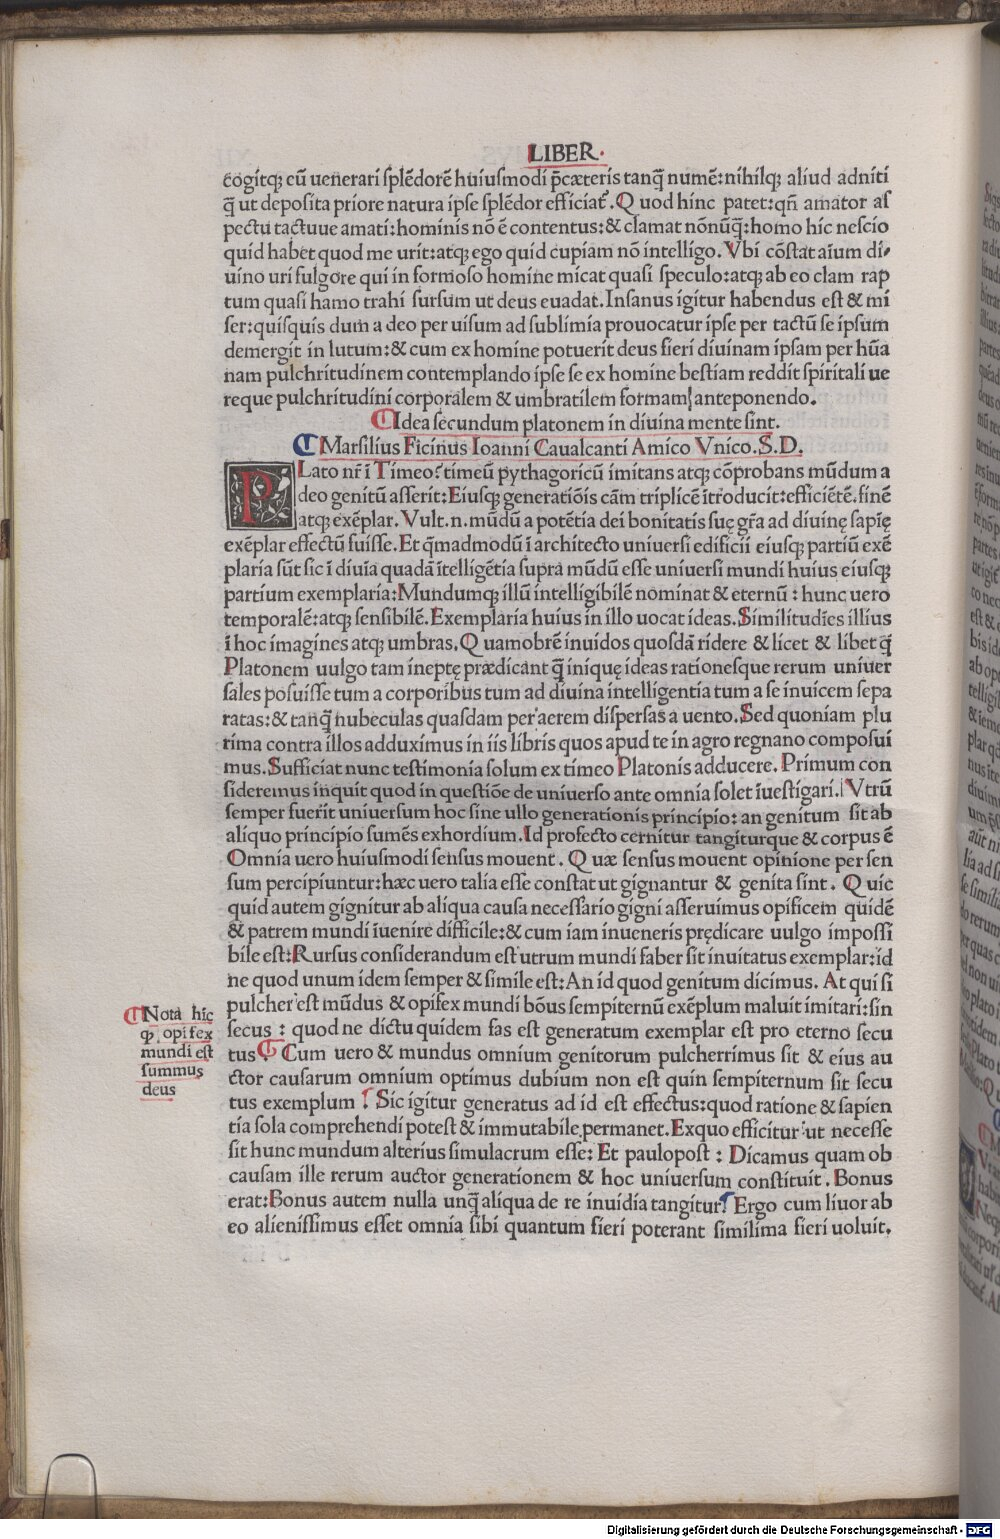 LIBER.
cogitqꝫ cū uenerari splēdorē huiusmodi p̄cæteris tanq̄ numē:nihilqꝫ aliud adniti
q̄ ut deposita priore natura ipse splēdor efficiat̃. Quod hinc patet:qñ amator as
pectu tactuue amati:hominis nō ē contentus:& clamat nōnūq̄:homo hic nescio
quid habet quod me urit:atqꝫ ego quid cupiam nō intelligo. Vbi cōstat aīum di-
uino uri fulgore qui in formoso homine micat quasi speculo:atqꝫ ab eo clam rap
tum quasi hamo trahi sursum ut deus euadat. Insanus igitur habendus est & mi
ser:quisquis dum a deo per uisum ad sublimia prouocatur ipse per tactū se ipsum
demergit in lutum:& cum ex homine potuerit deus fieri diuinam ipsam per hūa
nam pulchritudinem contemplando ipse se ex homine bestiam reddit spiritali ue
reque pulchritudini corporalem & umbratilem formam anteponendo.
Idea secundum platonem in diuina mente sint.
Marsilius Ficinus Ioanni Caualcanti Amico Vnico.S.D.
PLato nr̄ ī Timeo: timeū pythagoricū imitans atqꝫ cōprobans mūdum a
deo genitū asserit: Eiusqꝫ generatiōis cām triplicē ītroducit:efficiētē. finē
atqꝫ exēplar. Vult.n. mūdū a potētia dei bonitatis suę gr̄a ad diuinę sapię
exēplar effectū fuisse. Et q̄madmodū ī architecto uniuersi edificii eiusqꝫ partiū exē
plaria sūt sic ī diuīa quadā ītelligētia supra mūdū esse uniuersi mundi huius eiusqꝫ
partium exemplaria: Mundumqꝫ illū intelligibilē nominat & eternū : hunc uero
temporalē:atqꝫ sensibilē. Exemplaria huius in illo uocat ideas. Similitudīes illius
ī hoc imagines atqꝫ umbras. Quamobrē inuidos quosdā ridere & licet & libet q̄
Platonem uulgo tam ineptę prædicant q̄ iniquę ideas rationesque rerum uniuer
sales posuisse tum a corporibus tum ad diuina intelligentia tum a se inuicem sepa
ratas:& tanq̄ nubeculas quasdam per aerem dispersas a uento. Sed quoniam plu
rima contra illos adduximus in iis libris quos apud te in agro regnano composui
mus. Sufficiat nunc testimonia solum ex timeo Platonis adducere. Primum con
sideremus inquit quod in questiōe de uniuerso ante omnia solet īuestigari. Vtrū
semper fuerit uniuersum hoc sine ullo generationis principio: an genitum sit ab
aliquo principio sumēs exhordium. Id profecto cernitur tangiturque & corpus ē
Omnia uero huiusmodi sensus mouent. Quæ sensus mouent opinione per sen
sum percipiuntur:hæc uero talia esse constat ut gignantur & genita sint. Quic
quid autem gignitur ab aliqua causa necessario gigni asseruimus opificem quidē
& patrem mundi īuenire difficile:& cum iam inueneris prędicare uulgo impossi
bile est: Rursus considerandum est utrum mundi faber sit inuitatus exemplar:id
ne quod unum idem semper & simile est: An id quod genitum dicimus. At qui si
pulcher est mūdus & opifex mundi bōus sempiternū exēplum maluit imitari:sin
secus : quod ne dictu quidem fas est generatum exemplar est pro eterno secu
tus Cum uero & mundus omnium genitorum pulcherrimus sit & eius au
ctor causarum omnium optimus dubium non est quin sempiternum sit secu
tus exemplum : Sic igitur generatus ad id est effectus:quod ratione & sapien
tia sola comprehendi potest & immutabile permanet. Ex quo efficitur ut necesse
sit hunc mundum alterius simulacrum esse: Et paulopost : Dicamus quam ob
causam ille rerum auctor generationem & hoc uniuersum constituit. Bonus
erat: Bonus autem nulla unq̄ aliqua de re inuidia tangitur: Ergo cum liuor ab
eo alienissimus esset omnia sibi quantum fieri poterant similima fieri uoluit.
Nota hic
ꝙ opifex
mundi est
summus
deus
Digitalisierung gefördert durch die Deutsche Forschungsgemeinschaft - DFG